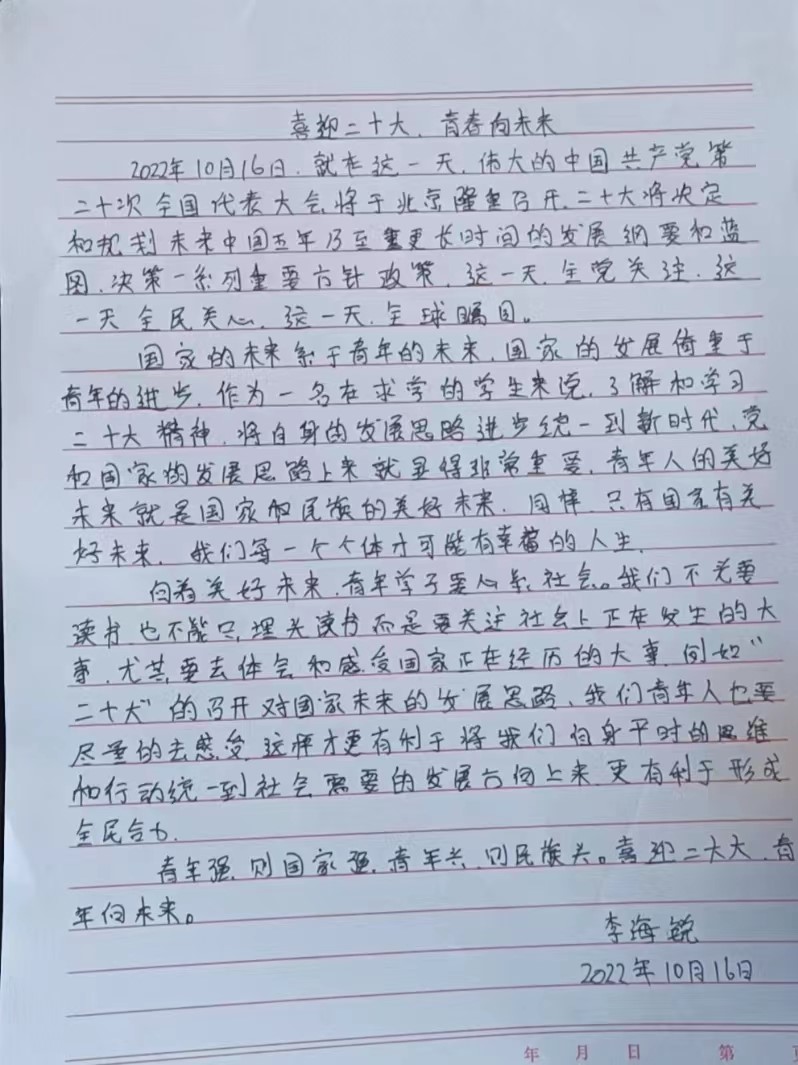 喜迎二十大、青春向未来
2022年10月16日、就在这一天、伟大的中国共产党第
二十次全国代表大会将于北京隆重召开、二十大将决定
和规划未来中国五年乃至更长时间的发展纲要和蓝
图、决策一系列重要方针政策、这一天、全党关注、这
一天全民关心、这一天、全球瞩目。
国家的未来系于青年的未来、国家的发展倚重于
青年的进步、作为一名在求学的学生来说、了解和学习
二十大精神、将自身的发展思路进步统一到新时代、党
和国家的发展思路上来就显得非常重要、青年人的美好
未来就是国家和民族的美好未来、同样、只有国家有美
好未来、我们每一个个体才可能有幸福的人生、
向着美好未来、青年学子要心系社会。我们不光要
读书也不能只埋头读书而是要关注社会上正在发生的大
事、尤其要去体会和感受国家正在经历的大事、例如“
二十大”的召开对国家未来的发展思路、我们青年人也要
尽量的去感受、这样才更有利于将我们自身平时的思维
和行动统一到社会需要的发展方向上来、更有利于形成
全民合力、
青年强、则国家强、青年兴、则民族兴。喜迎二大大、青
年向未来。
李海锐
2022年10月16日
年 月 日 第